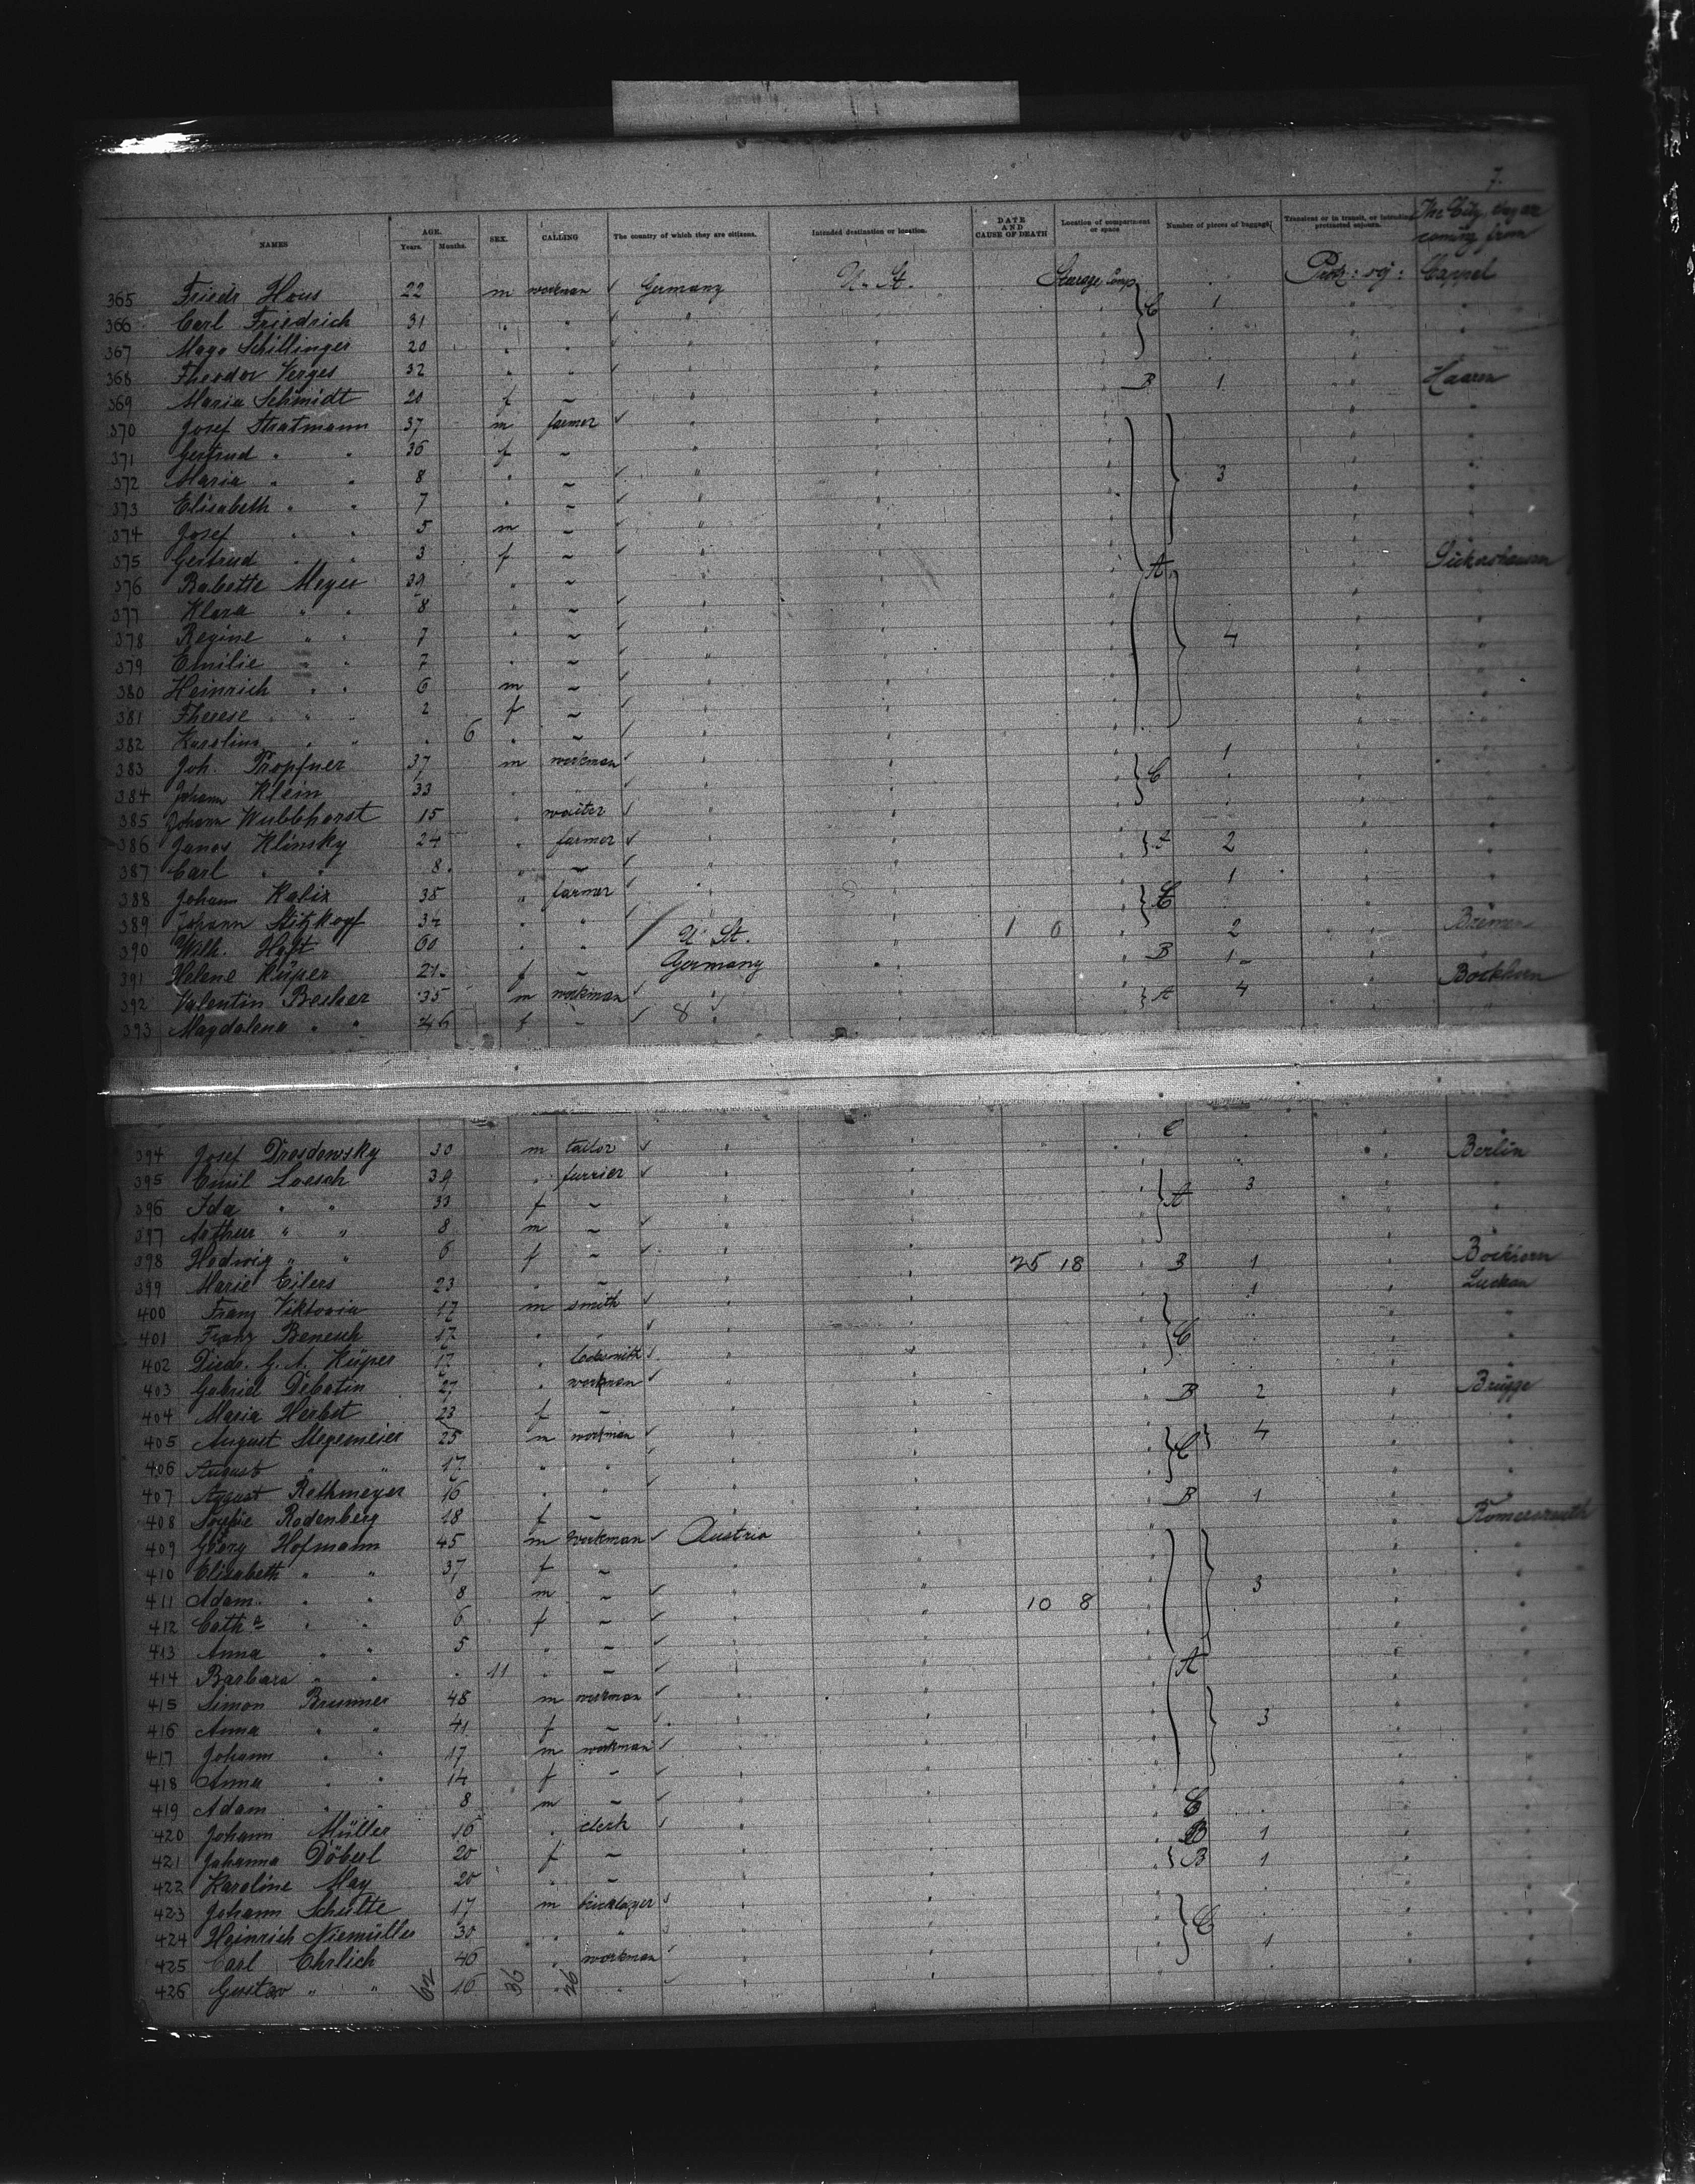 7.
NAMES AGE. Years. Months. SEX. CALLING The country of which they are citizens. Intended destination or location. DATE AND CAUSE OF DEATH Location of compartment or space Number of pieces of baggage Transient or in transit, or intending protracted sojourn. The City they are coming from
365 Friedr Hous 22 m workman ✓ Germany U. St. Steerage Comp Cappel
366 Carl Friedrich 31 " " ✓ " " C 1 "
367 Schillinger 20 " " ✓ " "
368 Theodor Verges 32 " " ✓ " "
369 Maria Schmidt 20 f ~ " " B 1 Haaren
370 Josef Stratmann 37 m farmer ✓ " "
371 Gertrud " " 36 f ~ " "
372 Maria " " 8 " ~ ✓ " " 3
373 Elisabeth " " 7 " ~ ✓ " "
374 Josef " " 5 m ~ ✓ " "
375 Gertrud " " 3 f ~ ✓ " "
376 Babette Meyer 39 " ~ " " A
377 Klara " " 8 " ~ ✓ " "
378 Regine " " 7 " ~ ✓ " " 4
379 Emilie " " 7 " ~ ✓ " "
380 Heinrich " " 6 m ~ ✓ " "
381 Therese " " 2 f ~ ✓ " "
382 Karoline " " . 6 " ~ ✓ " "
383 Joh. Propfner 37 m workman ✓ " " 1
384 Johann Klein 33 " " " " C
385 Johann Wubbhorst 15 " waiter ✓ " "
386 Janos Klinsky 24 " farmer ✓ " " 2
387 Carl " " 8 " ~ ✓ " "
388 Johann Kalix 38 " farmer ✓ " " 1
389 Johann Stitzkopf 34 " " ✓ " " C
390 Wilh. Haft 60 " " U St. " 1 0 2 Bremen
391 Helene Küper 21 f ~ Germany " B 1 "
392 Valentin Becker 35 m workman ✓ " " A 4 Bockhorn
393 Magdalena " " 46 f ~ ✓ 8 " "
394 Josef Drosdowsky 30 m tailor ✓ " " C
395 Emil Loesch 39 " furrier ✓ " " 3 Berlin
396 Ida " " 33 f ~ " " A
397 Arthur " " 8 m ~ ✓ " "
398 Hedwig " " 6 f ~ ✓ " "
399 Marie Eilers 23 " ~ " " 25 18 B 1 Bockhorn
400 Franz Viktoria 17 m smith ✓ " " 1 Luckau
401 Franz Benesch 17 " " ✓ " "
402 Died. G. A. Küper 17 " locksmith ✓ " " C
403 Gabriel Debatin 27 " workman ✓ " "
404 Maria Herbst 23 f ~ " " B 2 Brügge
405 August Stegemeier 25 m workman ✓ " " 4
406 August " " 17 " " ✓ " " C
407 August Rethmeyer 16 " " ✓ " "
408 Sophie Rodenberg 18 f ~ " " B 1
409 Georg Hofmann 45 m workman ✓ Austria "
410 Elisabeth " " 37 f ~ " "
411 Adam " " 8 m ~ ✓ " " 3
412 Cath a " " 6 f ~ ✓ " " 10 8
413 Anna " " 5 " ~ ✓ " "
414 Barbara " " . 11 " ~ ✓ " " A
415 Simon Brunner 48 m workman ✓ " "
416 Anna " " 41 f ~ ✓ " " 3
417 Johann " " 17 m workman ✓ " "
418 Anna " " 14 f ~ ✓ " "
419 Adam " " 8 m ~ ✓ " "
420 Johann Müller 16 " clerk ✓ " " C
421 Johanna Döberl 20 f ~ " " B 1
422 Karoline May 20 " ~ " " B 1
423 Johann Schulte 17 m bricklayer ✓ " "
424 Heinrich Niemüller 30 " " ✓ " " C
425 Carl Ehrlich 40 " workman ✓ " " 1
426 Gustav " " 16 " " ✓ " "
62 36 26